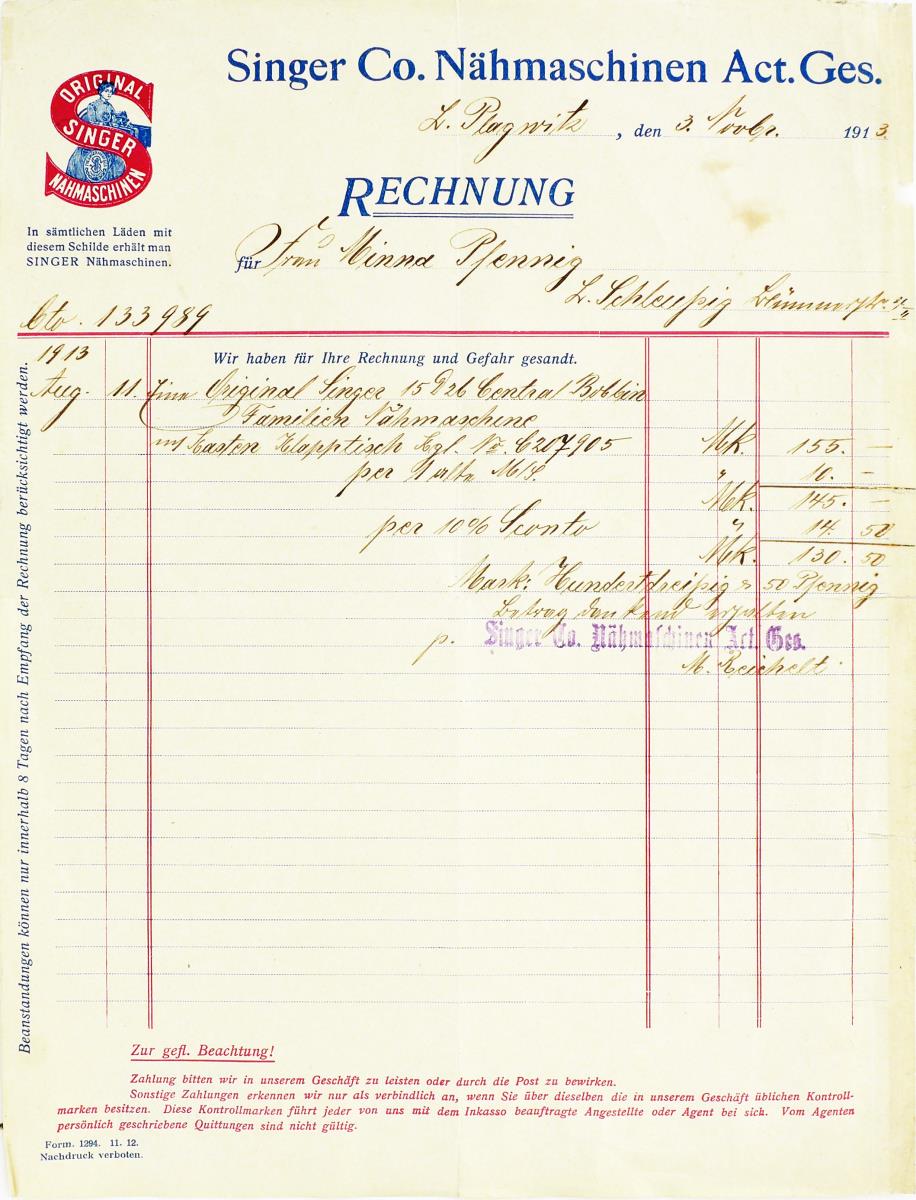 Singer Co. Nähmaschinen Act. Ges.
ORIGINAL
SINGER
NÄHMASCHINEN
L. Plagwitz, den 3. Novbr. 1913.
RECHNUNG
In sämtlichen Läden mit
diesem Schilde erhält man
SINGER Nähmaschinen.
für Frau Minna Pfennig
L. Schleußig Blümnerstr.
Cto. 133989
1913
Wir haben für Ihre Rechnung und Gefahr gesandt.
Aug. 11. Eine Original Singer 15 D 26 Central Bobbin
Familien Nähmaschine
mit Kasten Klapptisch Kgl. No. C207905 Mk. 155. —
per 1 alte M/S. " 10. —
Mk. 145. —
per 10% Sconto " 14. 50
Mk. 130. 50
Mark: Hundertdreißig & 50 Pfennig
Betrag dankend erhalten
p. Singer Co. Nähmaschinen Act. Ges.
M. Reichelt.
Beanstandungen können nur innerhalb 8 Tagen nach Empfang der Rechnung berücksichtigt werden.
Zur gefl. Beachtung!
Zahlung bitten wir in unserem Geschäft zu leisten oder durch die Post zu bewirken.
Sonstige Zahlungen erkennen wir nur als verbindlich an, wenn Sie über dieselben die in unserem Geschäft üblichen Kontroll-
marken besitzen. Diese Kontrollmarken führt jeder von uns mit dem Inkasso beauftragte Angestellte oder Agent bei sich. Vom Agenten
persönlich geschriebene Quittungen sind nicht gültig.
Form. 1294. 11. 12.
Nachdruck verboten.